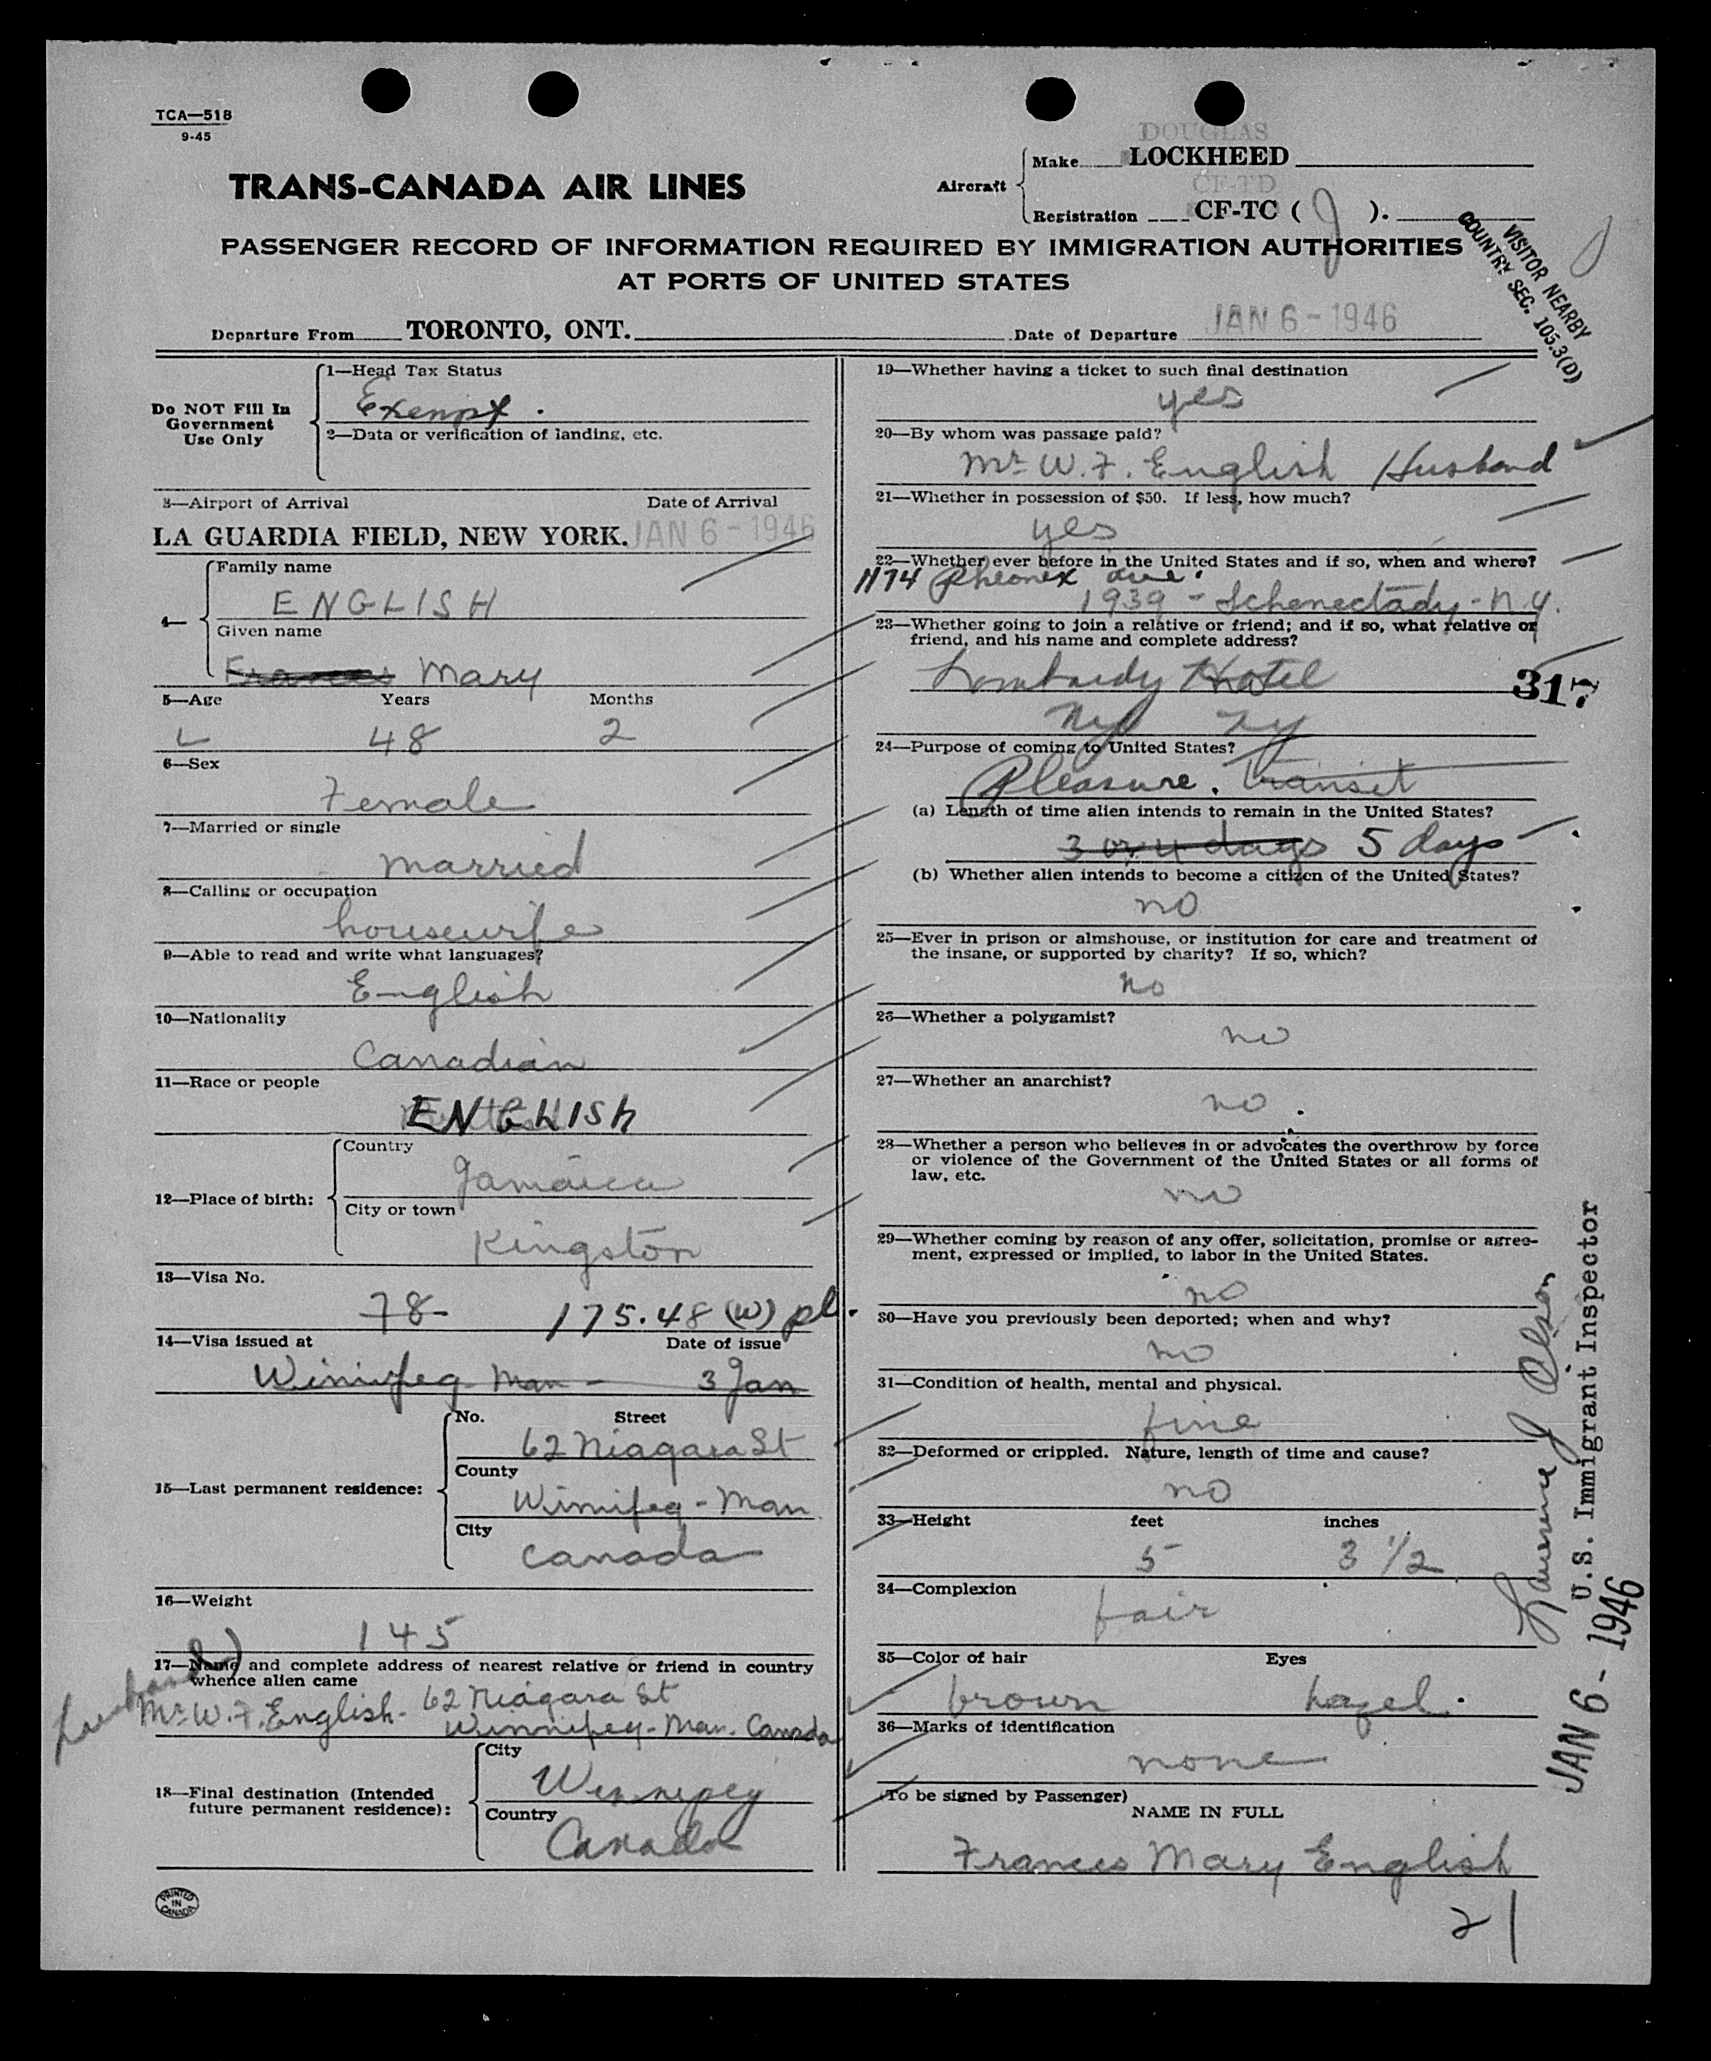 TCA—518
9-45
DOUGLAS
Make LOCKHEED
TRANS-CANADA AIR LINES
Aircraft
CF-TD
Registration CF-TC ( J ).
PASSENGER RECORD OF INFORMATION REQUIRED BY IMMIGRATION AUTHORITIES
AT PORTS OF UNITED STATES
VISITOR NEARBY
COUNTRY SEC. 105.3(D)
Departure From TORONTO, ONT. Date of Departure JAN 6 - 1946
Do NOT Fill In
Government
Use Only
1—Head Tax Status
Exempt.
2—Data or verification of landing, etc.
3—Airport of Arrival Date of Arrival
LA GUARDIA FIELD, NEW YORK. JAN 6 - 1946
4—
Family name
ENGLISH
Given name
Frances Mary
5—Age Years Months
48 2
6—Sex
Female
7—Married or single
married
8—Calling or occupation
housewife
9—Able to read and write what languages?
English
10—Nationality
Canadian
11—Race or people
ENGLISH
12—Place of birth:
Country
Jamaica
City or town
Kingston
13—Visa No.
78- 175.48 (W) pl.
14—Visa issued at Date of issue
Winnipeg Man - 3 Jan
15—Last permanent residence:
No. Street
62 Niagara St
County
Winnipeg - Man
City
Canada
16—Weight
145
17—Name and complete address of nearest relative or friend in country
whence alien came
(husband)
Mr W. F. English - 62 Niagara St
Winnipeg - Man. Canada
18—Final destination (Intended
future permanent residence):
City
Winnipeg
Country
Canada
PRINTED
IN
CANADA
19—Whether having a ticket to such final destination
yes
20—By whom was passage paid?
Mr W. F. English Husband
21—Whether in possession of $50. If less, how much?
yes
22—Whether ever before in the United States and if so, when and where?
1174 Pheonex ave.
1939 - Schenectady - N.Y.
23—Whether going to join a relative or friend; and if so, what relative or
friend, and his name and complete address?
Lombardy Hotel
317
NY NY
24—Purpose of coming to United States?
Pleasure. Transit
(a) Length of time alien intends to remain in the United States?
3 or 4 days 5 days
(b) Whether alien intends to become a citizen of the United States?
no
25—Ever in prison or almshouse, or institution for care and treatment of
the insane, or supported by charity? If so, which?
no
26—Whether a polygamist?
no
27—Whether an anarchist?
no.
28—Whether a person who believes in or advocates the overthrow by force
or violence of the Government of the United States or all forms of
law, etc.
no
29—Whether coming by reason of any offer, solicitation, promise or agree-
ment, expressed or implied, to labor in the United States.
no
30—Have you previously been deported; when and why?
no
31—Condition of health, mental and physical.
fine
32—Deformed or crippled. Nature, length of time and cause?
no
33—Height feet inches
5 3 1/2
34—Complexion
fair
35—Color of hair Eyes
brown hazel.
36—Marks of identification
none
(To be signed by Passenger)
NAME IN FULL
Frances Mary English
21
Lawrence J Olson
U.S. Immigrant Inspector
JAN 6 - 1946